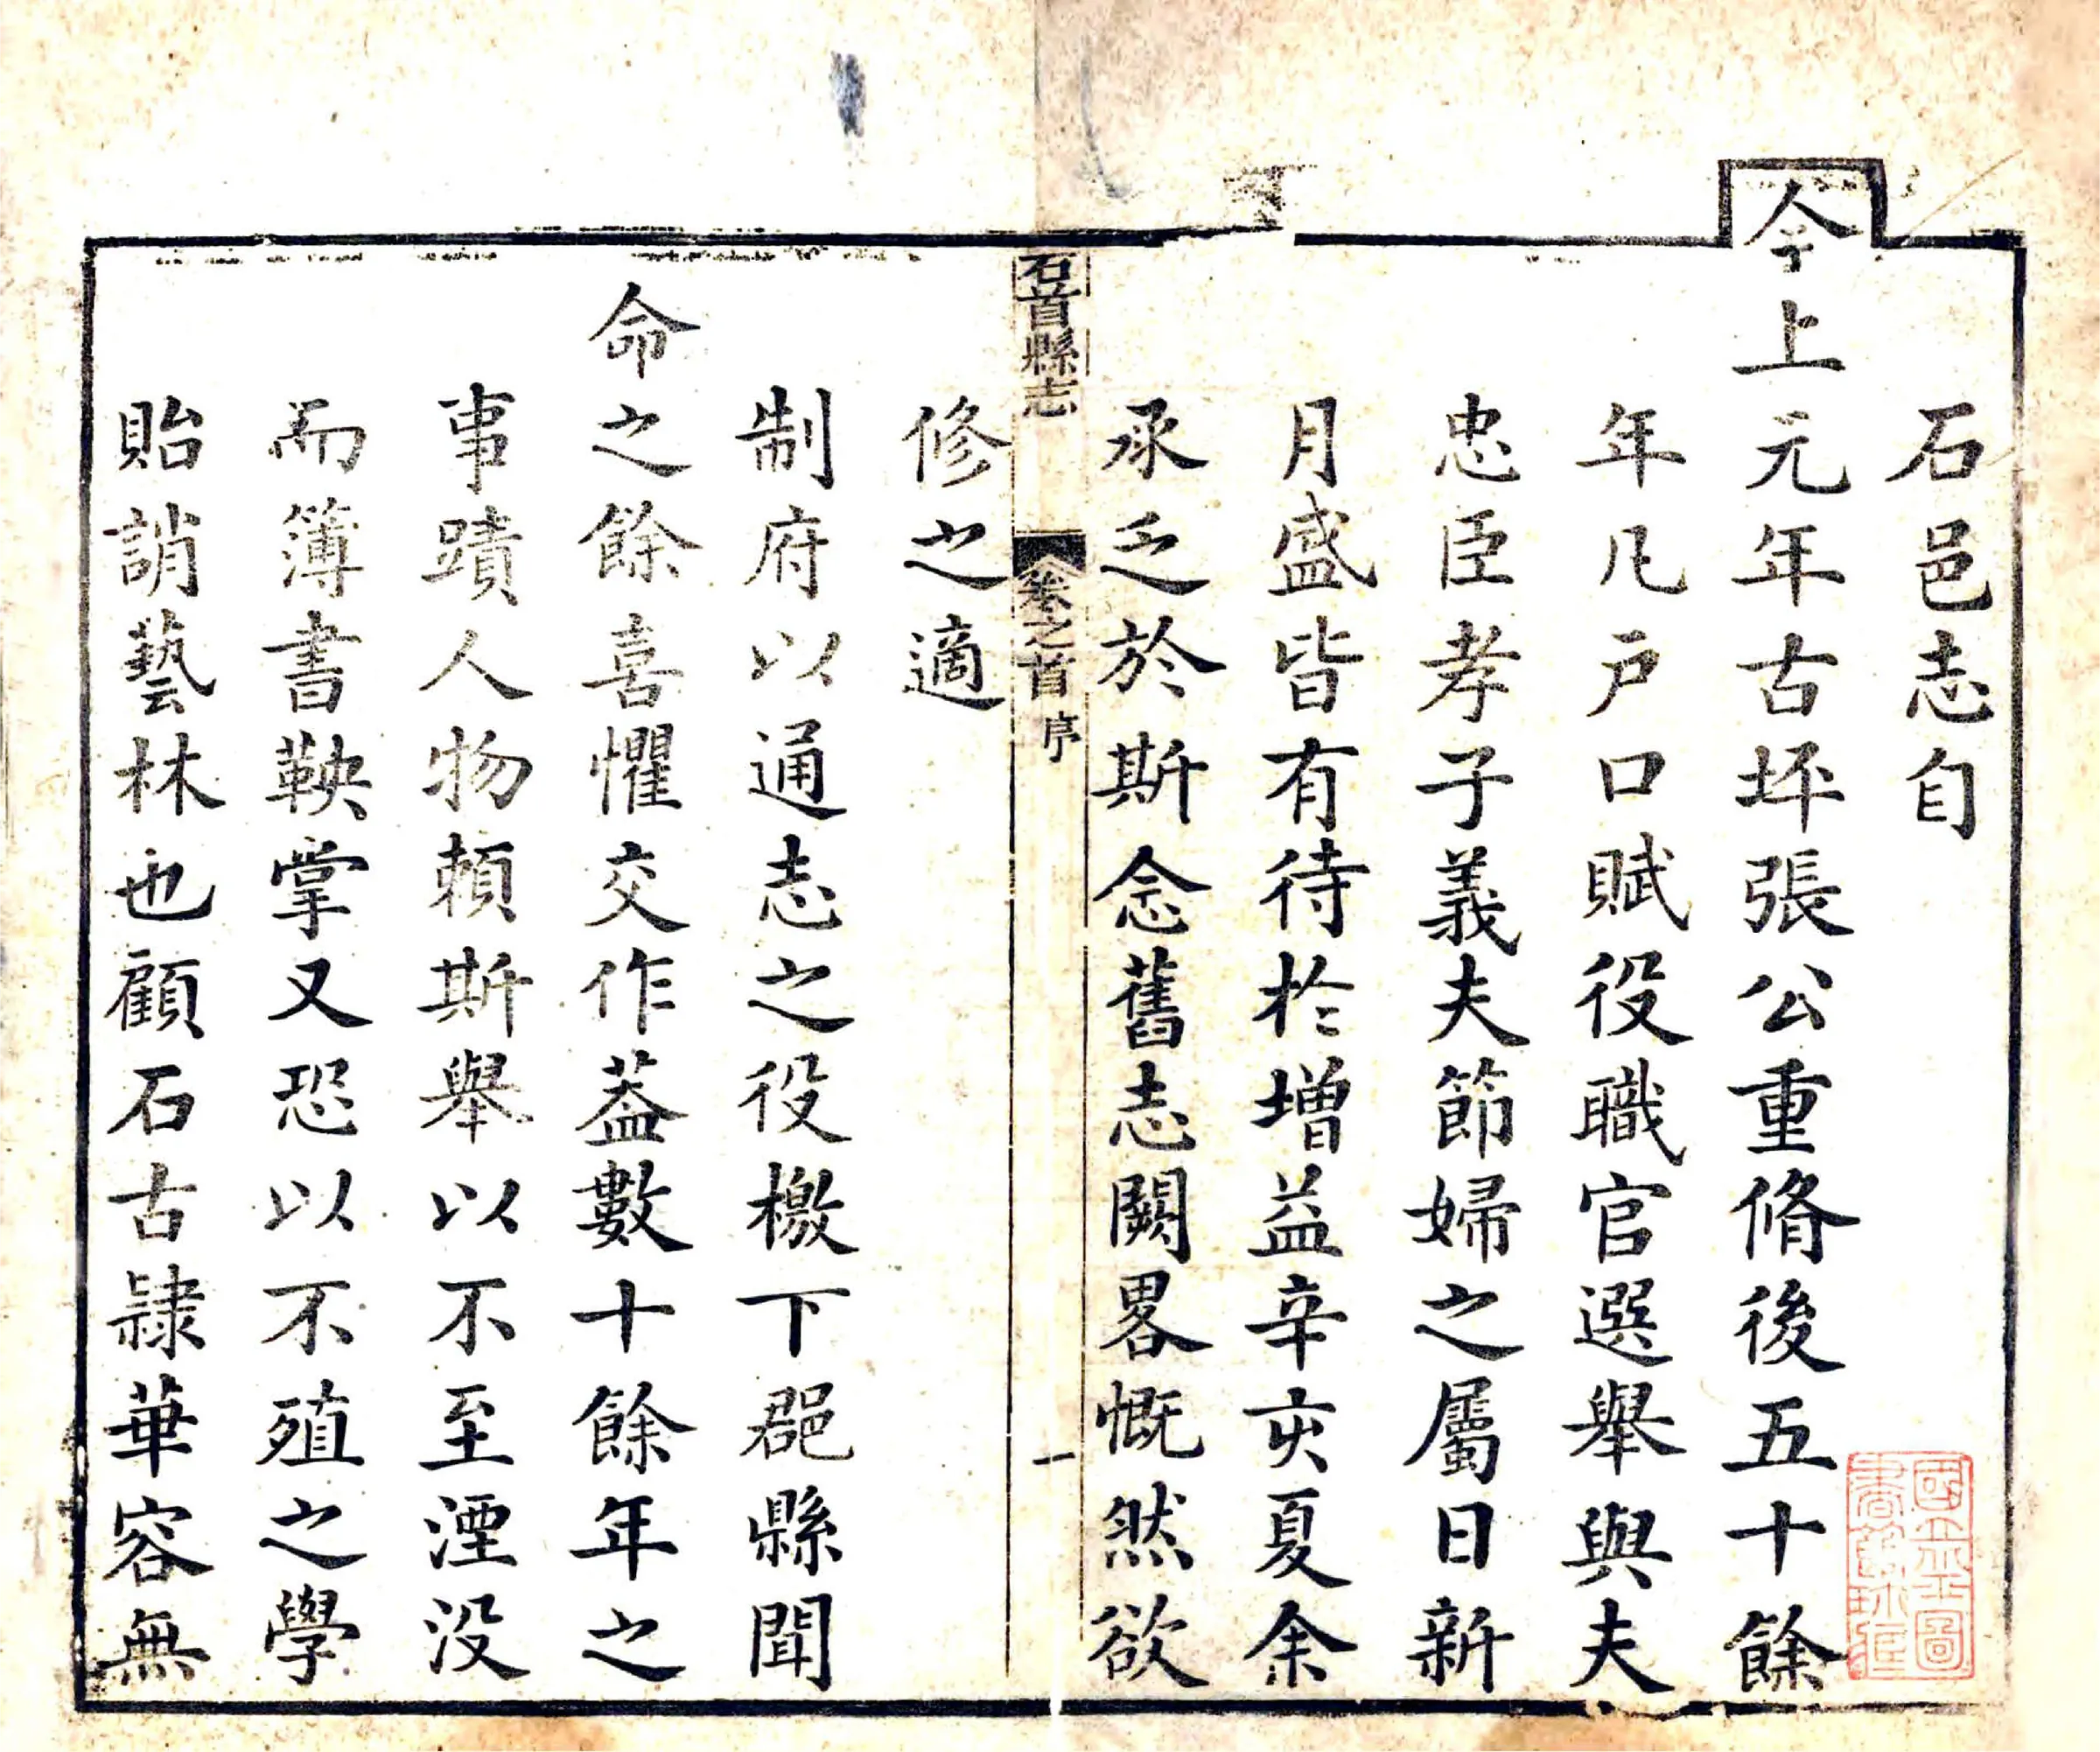 石邑志自
今上元年古坪張公重脩後五十餘
年凡户口賦役職官選舉與夫
忠臣孝子義夫節婦之屬日新
月盛皆有待於增益辛亥夏余
承乏於斯念舊志闕畧慨然欲
石首縣志 卷之首 序 一
修之適
制府以通志之役檄下郡縣聞
命之餘喜懼交作葢數十餘年之
事蹟人物頼斯舉以不至湮没
而簿書鞅掌又恐以不殖之學
貽誚藝林也顧石古隷華容無